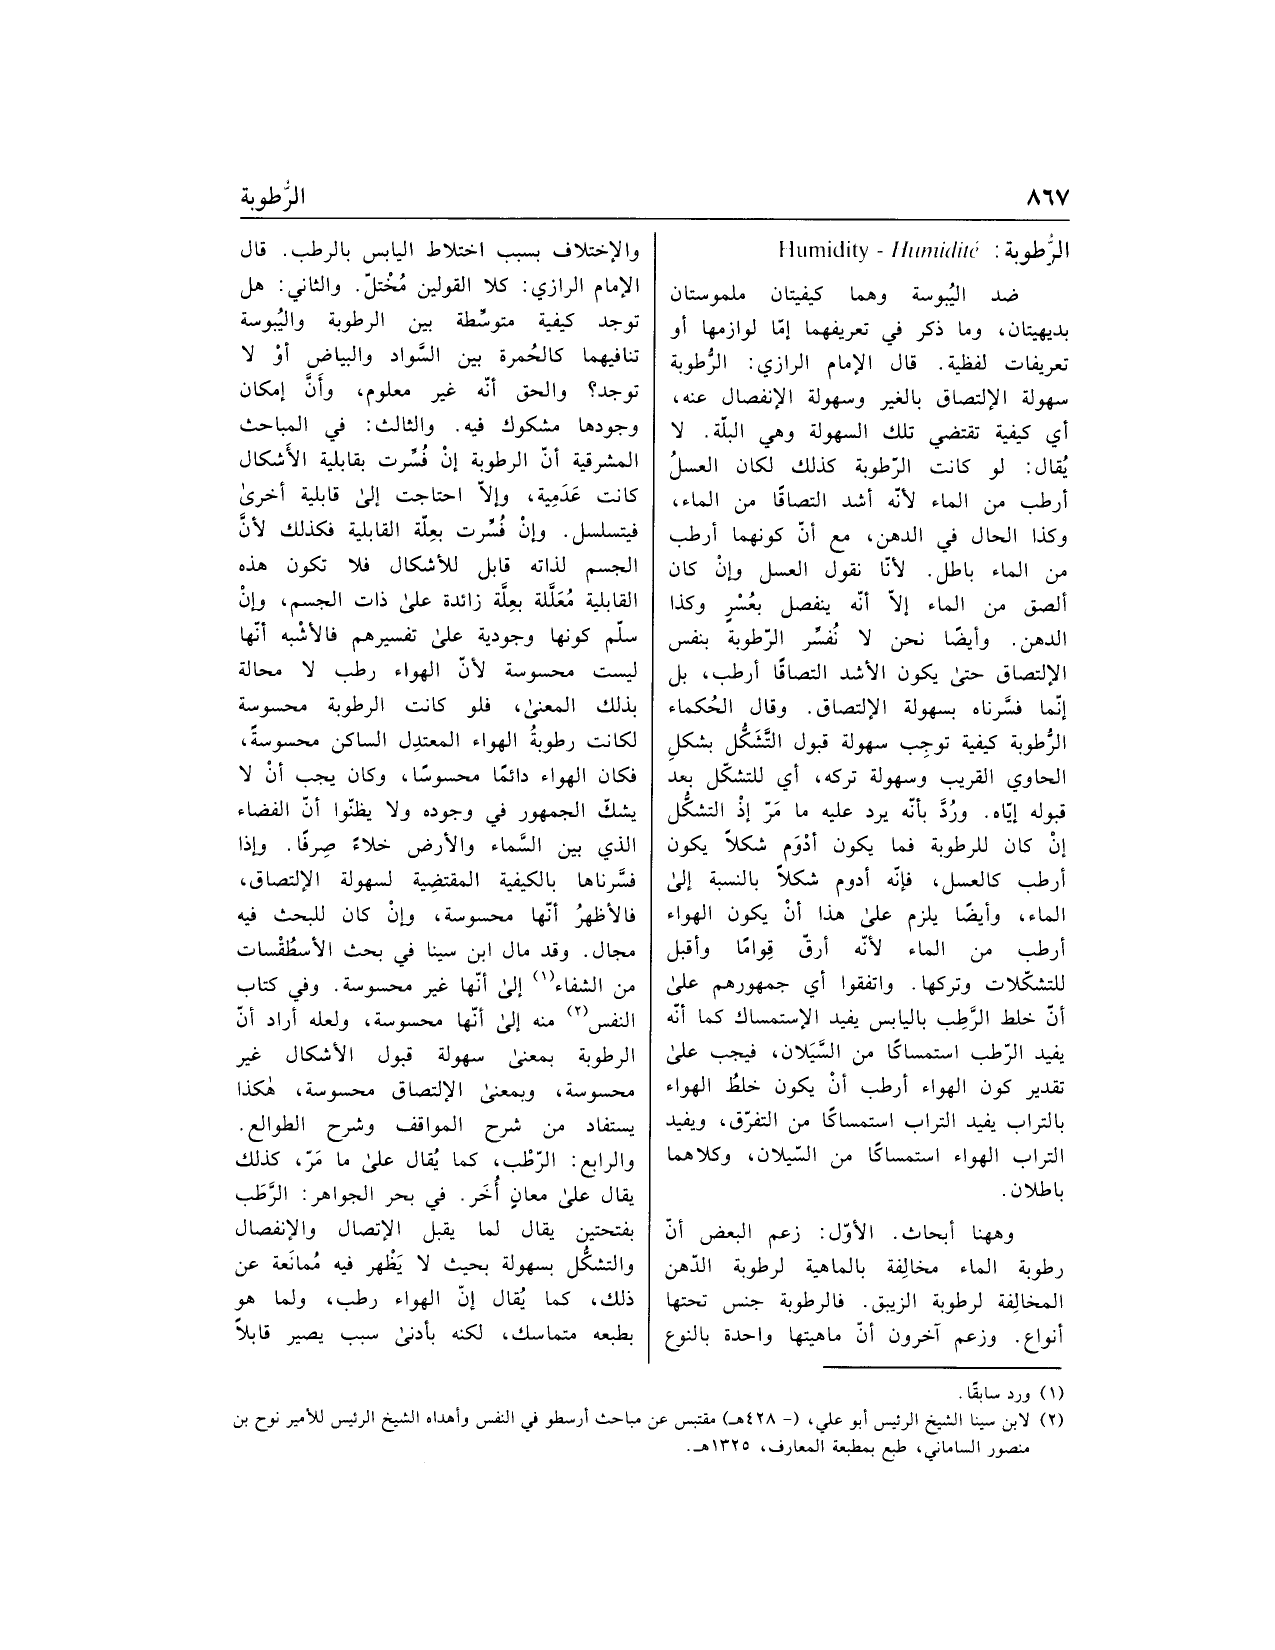 ٨٦٧
الرُّطوبة
الرُّطوبة: Humidity - Humidité
ضد اليُبوسة وهما كيفيتان ملموستان
بديهيتان، وما ذكر في تعريفهما إمّا لوازمها أو
تعريفات لفظية. قال الإمام الرازي: الرُّطوبة
سهولة الإلتصاق بالغير وسهولة الإنفصال عنه،
أي كيفية تقتضي تلك السهولة وهي البلّة. لا
يُقال: لو كانت الرّطوبة كذلك لكان العسلُ
أرطب من الماء لأنّه أشد التصاقًا من الماء،
وكذا الحال في الدهن، مع أنّ كونهما أرطب
من الماء باطل. لأنّا نقول العسل وإنْ كان
ألصق من الماء إلاّ أنّه ينفصل بعُسْرٍ وكذا
الدهن. وأيضًا نحن لا نُفسِّر الرّطوبة بنفس
الإلتصاق حتىٰ يكون الأشد التصاقًا أرطب، بل
إنّما فسَّرناه بسهولة الإلتصاق. وقال الحُكماء
الرُّطوبة كيفية توجِب سهولة قبول التَّشَكُّل بشكلِ
الحاوي القريب وسهولة تركه، أي للتشكّل بعد
قبوله إيّاه. ورُدَّ بأنّه يرد عليه ما مَرّ إذْ التشكُّل
إنْ كان للرطوبة فما يكون أدْوَم شكلاً يكون
أرطب كالعسل، فإنّه أدوم شكلاً بالنسبة إلىٰ
الماء، وأيضًا يلزم علىٰ هذا أنْ يكون الهواء
أرطب من الماء لأنّه أرقّ قِوامًا وأقبل
للتشكّلات وتركها. واتفقوا أي جمهورهم علىٰ
أنّ خلط الرَّطب باليابس يفيد الإستمساك كما أنّه
يفيد الرّطب استمساكًا من السَّيَلان، فيجب علىٰ
تقدير كون الهواء أرطب أنْ يكون خلطُ الهواء
بالتراب يفيد التراب استمساكًا من التفرّق، ويفيد
التراب الهواء استمساكًا من السّيلان، وكلاهما
باطلان.
وههنا أبحاث. الأوّل: زعم البعض أنّ
رطوبة الماء مخالِفة بالماهية لرطوبة الدّهن
المخالِفة لرطوبة الزيبق. فالرطوبة جنس تحتها
أنواع. وزعم آخرون أنّ ماهيتها واحدة بالنوع
والإختلاف بسبب اختلاط اليابس بالرطب. قال
الإمام الرازي: كلا القولين مُخْتلّ. والثاني: هل
توجد كيفية متوسِّطة بين الرطوبة واليُبوسة
تنافيهما كالحُمرة بين السَّواد والبياض أوْ لا
توجد؟ والحق أنّه غير معلوم، وأنَّ إمكان
وجودها مشكوك فيه. والثالث: في المباحث
المشرقية أنّ الرطوبة إنْ فُسِّرت بقابلية الأَشكال
كانت عَدَمِية، وإلاّ احتاجت إلىٰ قابلية أخرىٰ
فيتسلسل. وإنْ فُسِّرت بعِلّة القابلية فكذلك لأنَّ
الجسم لذاته قابل للأشكال فلا تكون هذه
القابلية مُعَلَّلة بعِلَّة زائدة علىٰ ذات الجسم، وإنْ
سلّم كونها وجودية علىٰ تفسيرهم فالأشْبه أنّها
ليست محسوسة لأنّ الهواء رطب لا محالة
بذلك المعنىٰ، فلو كانت الرطوبة محسوسة
لكانت رطوبةُ الهواء المعتدِل الساكن محسوسةً،
فكان الهواء دائمًا محسوسًا، وكان يجب أنْ لا
يشكّ الجمهور في وجوده ولا يظنّوا أنّ الفضاء
الذي بين السَّماء والأرض خلاءً صِرفًا. وإذا
فسَّرناها بالكيفية المقتضِية لسهولة الإلتصاق،
فالأظهرُ أنّها محسوسة، وإنْ كان للبحث فيه
مجال. وقد مال ابن سينا في بحث الأسطُقْسات
من الشفاء(١) إلىٰ أنّها غير محسوسة. وفي كتاب
النفس(٢) منه إلىٰ أنّها محسوسة، ولعله أراد أنّ
الرطوبة بمعنىٰ سهولة قبول الأشكال غير
محسوسة، وبمعنىٰ الإلتصاق محسوسة، هٰكذا
يستفاد من شرح المواقف وشرح الطوالع.
والرابع: الرّطْب، كما يُقال علىٰ ما مَرّ، كذلك
يقال علىٰ معانٍ أُخَر. في بحر الجواهر: الرَّطَب
بفتحتين يقال لما يقبل الإتصال والإنفصال
والتشكُّل بسهولة بحيث لا يَظْهر فيه مُمانَعة عن
ذلك، كما يُقال إنّ الهواء رطب، ولما هو
بطبعه متماسك، لكنه بأدنىٰ سبب يصير قابلاً
(١) ورد سابقًا.
(٢) لابن سينا الشيخ الرئيس أبو علي، (- ٤٢٨هـ) مقتبس عن مباحث أرسطو في النفس وأهداه الشيخ الرئيس للأمير نوح بن
منصور الساماني، طبع بمطبعة المعارف، ١٣٢٥هـ.